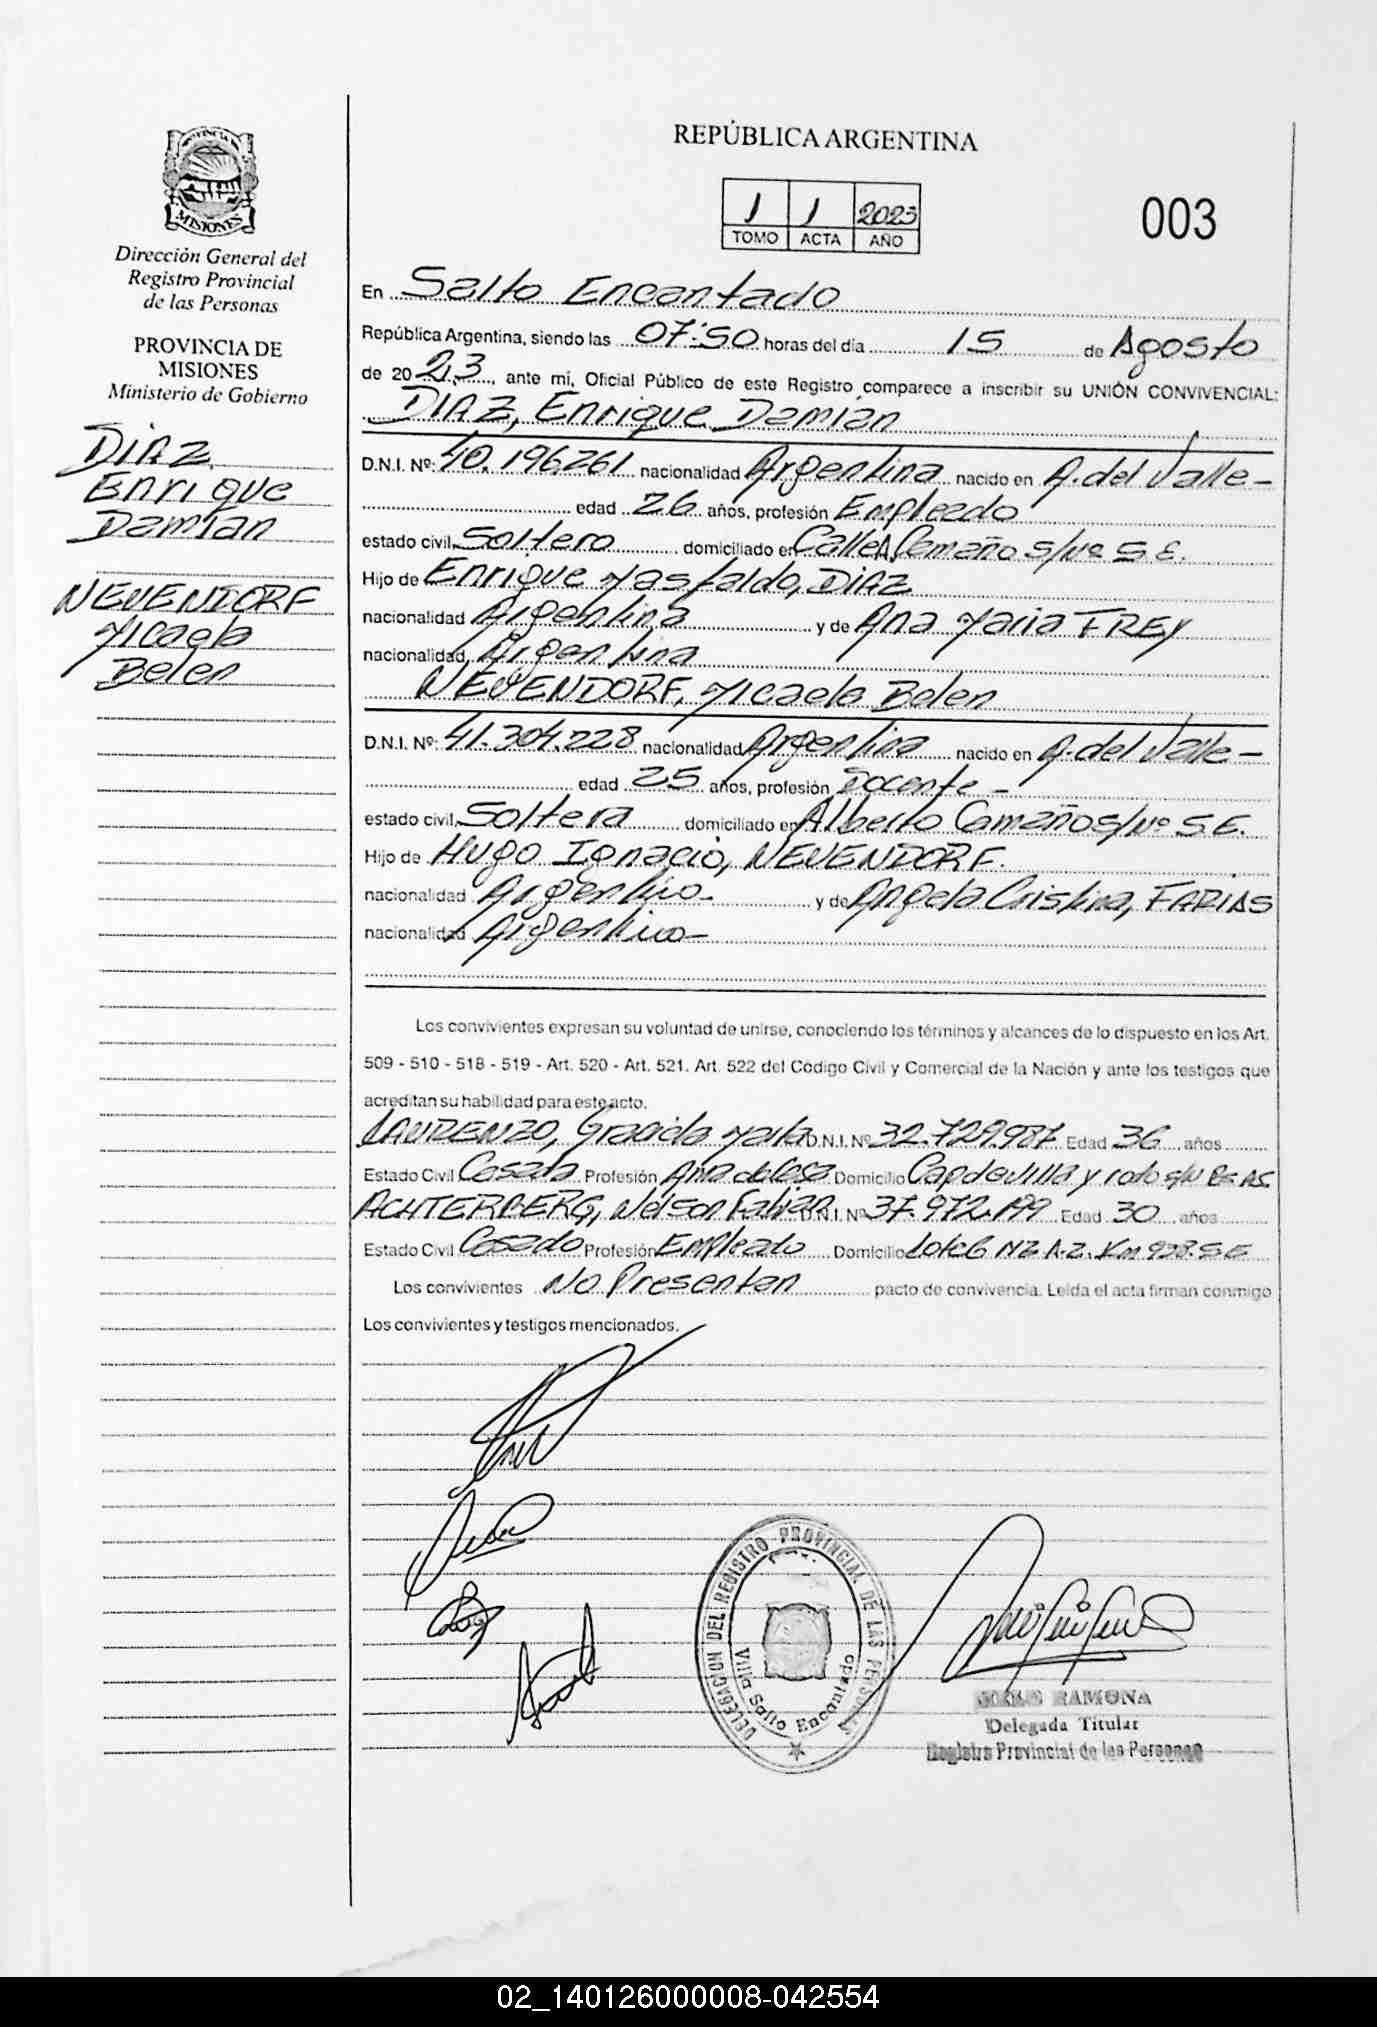 Dirección General del
Registro Provincial
de las Personas
PROVINCIA DE
MISIONES
Ministerio de Gobierno
DIAZ
Enrique
Damian
NEUENDORF
Micaela
Belen
REPÚBLICA ARGENTINA
1 1 2023
TOMO ACTA AÑO
003
En Salto Encantado
República Argentina, siendo las 07:50 horas del día 15 de Agosto
de 2023, ante mí, Oficial Público de este Registro comparece a inscribir su UNIÓN CONVIVENCIAL:
DIAZ, Enrique Damian
D.N.I. Nº: 40.196.261 nacionalidad Argentina nacido en A. del Valle-
edad 26 años, profesión Empleado
estado civil Soltero domiciliado en Calle A. Camaño s/nº S.E.
Hijo de Enrique DIAZ
nacionalidad Argentina y de Ana Maria FREY
nacionalidad Argentina
NEUENDORF, Micaela Belen
D.N.I. Nº: 41.304.228 nacionalidad Argentina nacido en A. del Valle-
edad 25 años, profesión Docente-
estado civil Soltera domiciliado en Alberto Camaño s/nº S.E.
Hijo de Hugo Ignacio, NEUENDORF.
nacionalidad Argentina- y de Angela Cristina, FARIAS
nacionalidad Argentina-
Los convivientes expresan su voluntad de unirse, conociendo los términos y alcances de lo dispuesto en los Art.
509 - 510 - 518 - 519 - Art. 520 - Art. 521. Art. 522 del Codigo Civil y Comercial de la Nación y ante los testigos que
acreditan su habilidad para este acto.
LAURENZO, Graciela D.N.I. Nº 32.729.987 Edad 36 años
Estado Civil Casada Profesión Ama de Casa Domicilio Capdevilla y
ACHTERBERG, Nelson Fabian D.N.I. Nº 37.972.199 Edad 30 años
Estado Civil Casado Profesión Empleado Domicilio Lote 6 MZ A-2. Km 928. S.E
Los convivientes No Presentan pacto de convivencia. Leída el acta firman conmigo
Los convivientes y testigos mencionados.
DELEGACION DEL REGISTRO PROVINCIAL DE LAS PERSONAS
Villa Salto Encantado
RAMONA
Delegada Titular
Registro Provincial de las Personas
02_140126000008-042554